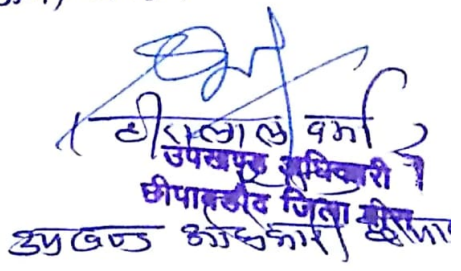 ( हीरालाल वर्मा )
उपखण्ड अधिकारी
छीपाबड़ौद जिला
उपखण्ड अधिकारी